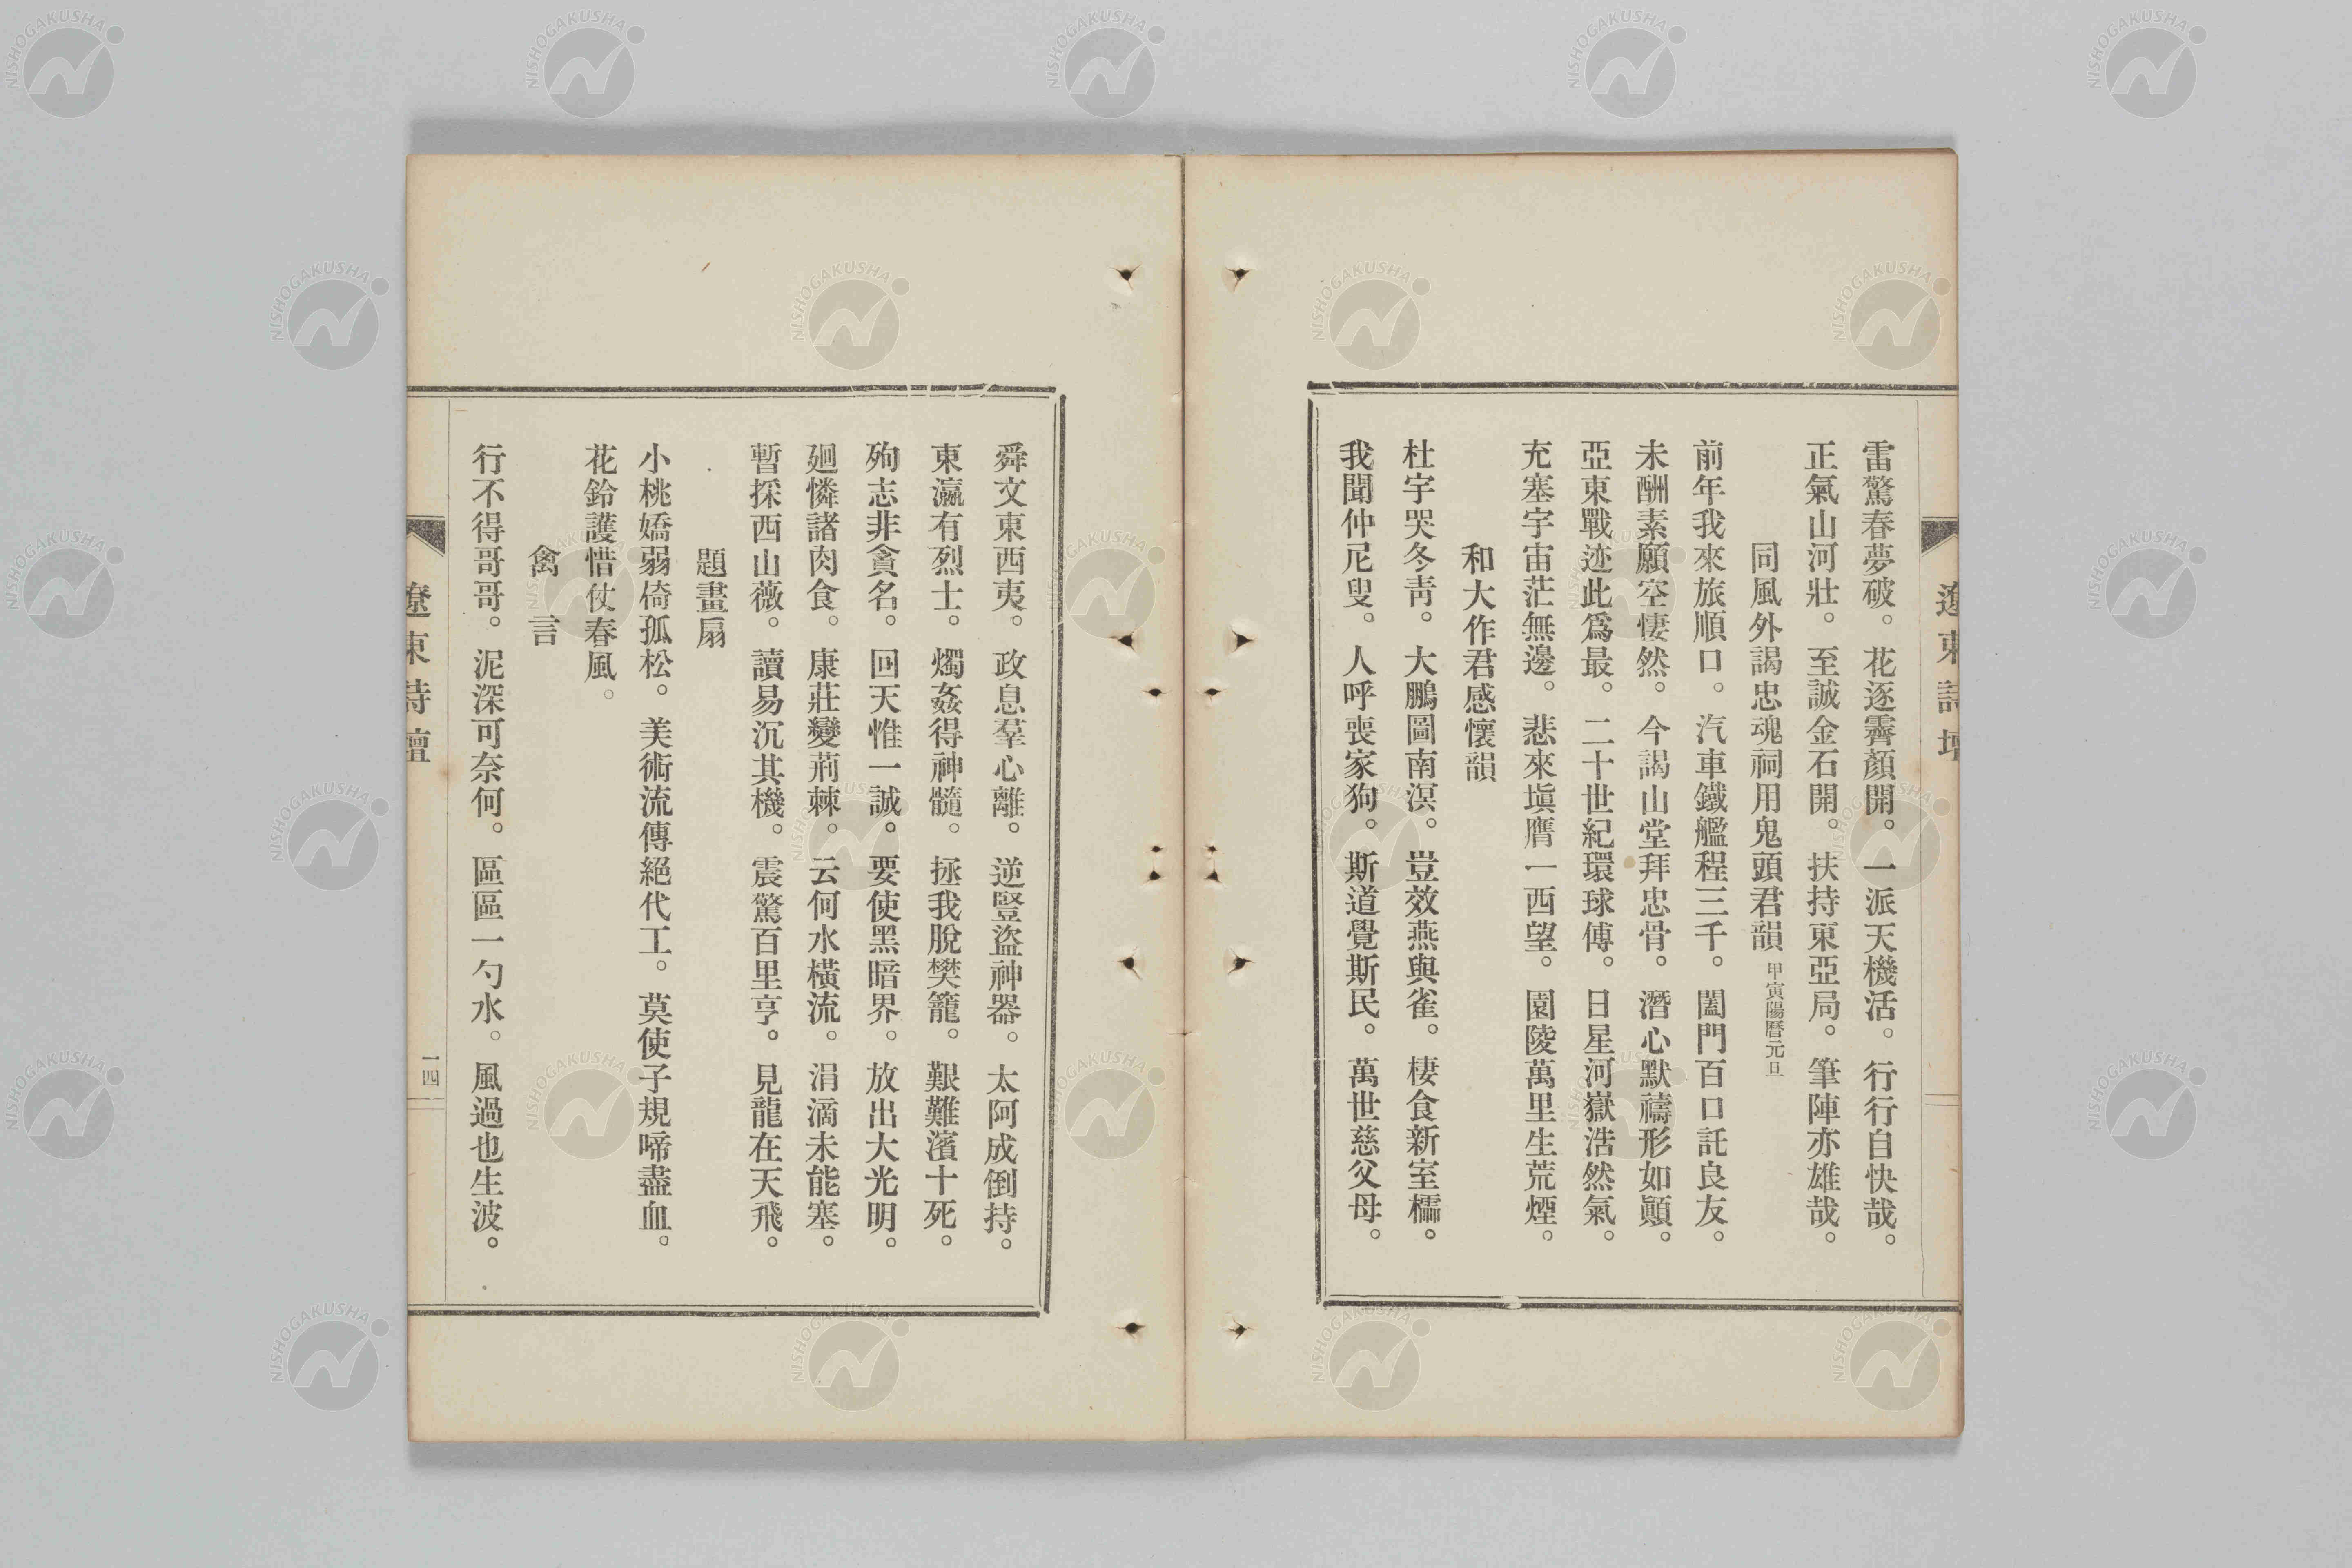 遼東詩壇
雷驚春夢破。花逐霽顏開。一派天機活。行行自快哉。
正氣山河壯。至誠金石開。扶持東亞局。筆陣亦雄哉。
同風外謁忠魂祠用鬼頭君韻 甲寅陽曆元旦
前年我來旅順口。汽車鐵艦程三千。闔門百口託良友。
未酬素願空悽然。今謁山堂拜忠骨。潛心默禱形如顚。
亞東戰迹此爲最。二十世紀環球傳。日星河嶽浩然氣。
充塞宇宙茫無邊。悲來塡膺一西望。園陵萬里生荒煙。
和大作君感懷韻
杜宇哭冬靑。大鵬圖南溟。豈效燕與雀。棲食新室櫺。
我聞仲尼叟。人呼喪家狗。斯道覺斯民。萬世慈父母。
舜文東西夷。政息羣心離。逆豎盜神器。太阿成倒持。
東瀛有烈士。燭姦得神髓。拯我脫樊籠。艱難濱十死。
殉志非貪名。回天惟一誠。要使黑暗界。放出大光明。
廻憐諸肉食。康莊變荊棘。云何水橫流。涓滴未能塞。
暫採西山薇。讀易沉其機。震驚百里亨。見龍在天飛。
題畫扇
小桃嬌弱倚孤松。美術流傳絕代工。莫使子規啼盡血。
花鈴護惜仗春風。
禽言
行不得哥哥。泥深可奈何。區區一勺水。風過也生波。
遼東詩壇
一四
NISHOGAKUSHA